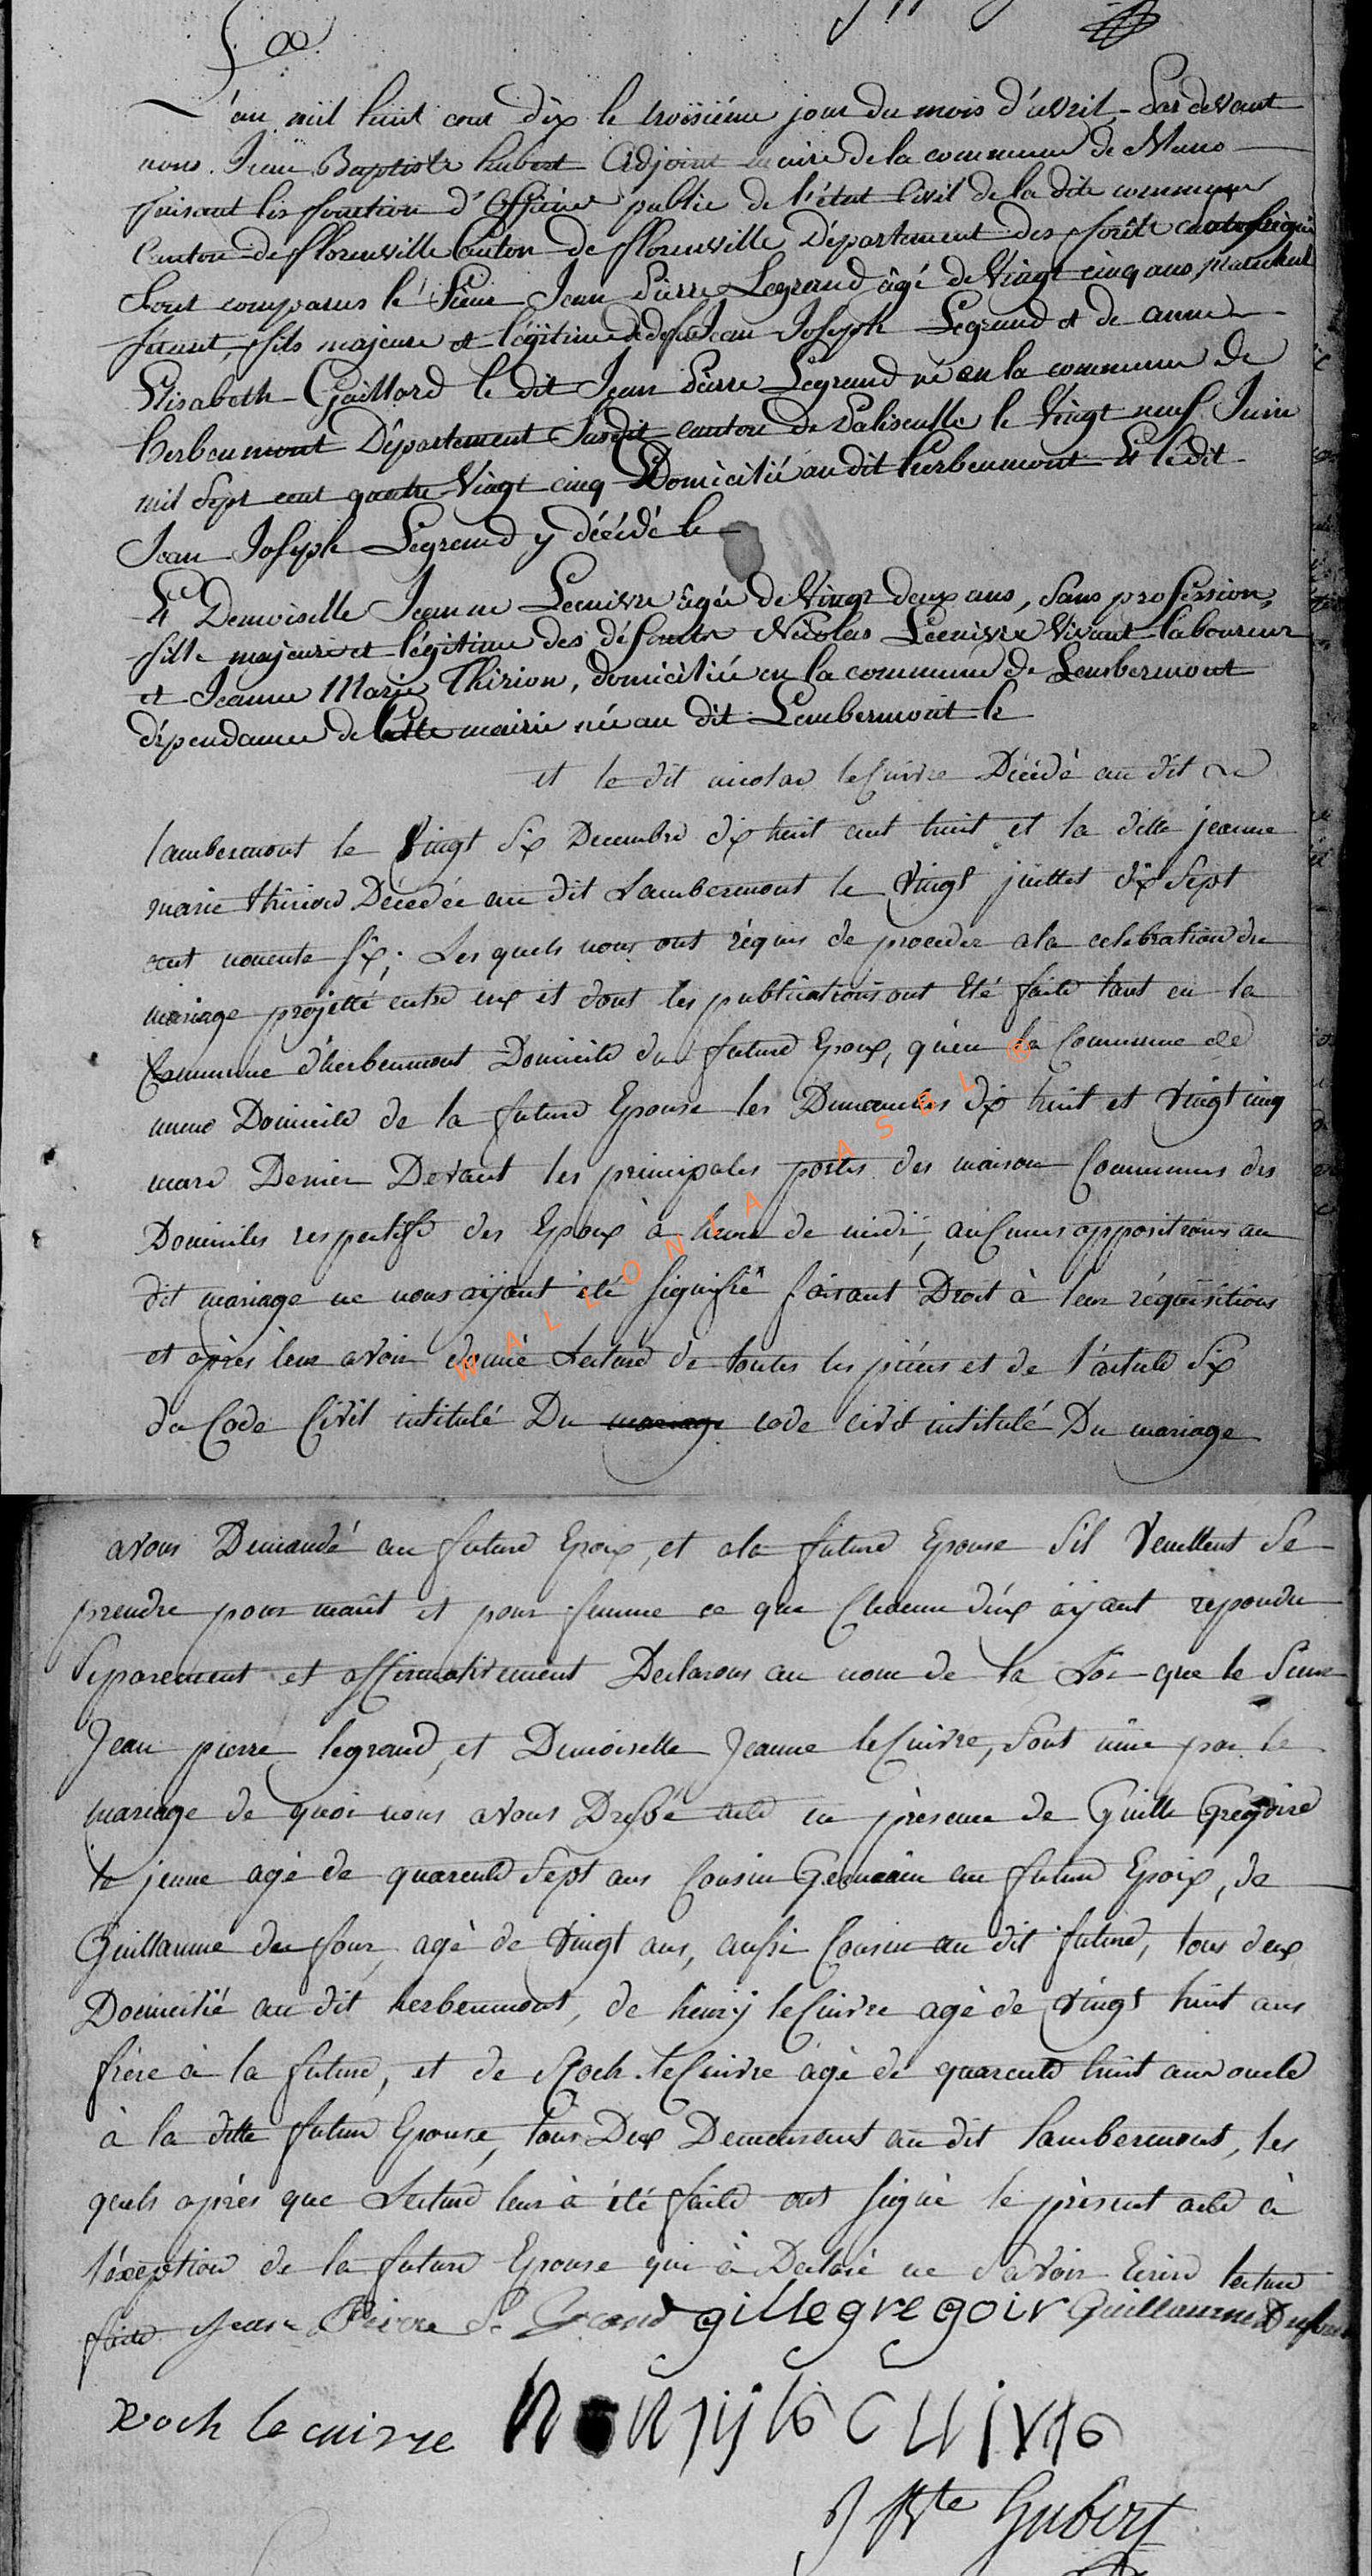 L'an mil huit cent dix le troisiéme jour du mois d'avril Par devant
nous Jean Baptiste hubert Adjoint maire de la commune de Muno
faisant les fonction d'officier public de l'état Civil de la dite commune
Canton de florenville Canton de florenville Département des forêts
Sont comparus le Sieur Jean Pierre Legrand âgé de Vingt cinq ans marechal
ferant, fils majeure et légitime de defunt Jean Joseph Legrand et de anne
Elisabeth Gaillard le dit Jean Pierre Legrand né en la commune de
herbeumont Département Susdit canton de Paliseulle le Vingt neuf Juin
mil Sept cent quatre Vingt cinq Domicilié au dit herbeumont Et le dit
Jean Joseph Legrand y décédé le
Et Demoiselle Jeanne Lecuivre âgée de Vingt deux ans, Sans profession,
fille majeure et légitime des défunts Nicolas Lecuivre Vivant laboureur
et Jeanne Marie Thirion, domiciliée en la commune de Lambermont
dépendance de cette mairie née au dit Lambermont le
et le dit nicolas leCuivre Décédé au dit
lambermont le Vingt Six Decembre dix huit cent huit et la ditte jeanne
marie thirion Décédée au dit Lambermont le Vingt juillet dix Sept
cent nonente Six; Les quels nous ont réquis de proceder a la celebration du
mariage projetté entre eux et dont les publications ont Eté faite tant en la
Commune d'herbeumont Domicile du future Epoux, qu'en la Commune de
muno Domicile de la future Epouse les Dimanches dix huit et Vingt cinq
mars Dernier Devant les principales portes des maison Communes des
Domiciles respectifs des Epoux à heure de midi, auCunes oppositions au
dit mariage ne nous aÿant été Signifié faisant Droit à leur réquisitions
et après leur avoir donné Lecture de toutes les pièces et de l'article Six
du Code Civil intitulé Du mariage code civil intitulé Du mariage
avons Demandé au future Epoux, et a la future Epouse S'il Veuillent Se
prendre pour marit et pour femme ce que Chacun d'eux aÿant repondu
Separement et affirmativement Declarons au nom de la Loi que le Sieur
Jean pierre legrand, et Demoiselle Jeanne leCuivre, Sont unie par le
mariage de quoi nous avons Dressé acte en prèsence de Guille Gregoire
le jeune agé de quarente Sept ans Cousin Germain au future Epoix, de
Guillaume du four, agé de Vingt ans, aussi Cousin au dit future, tous deux
Domicilié au dit herbeumont, de henrÿ leCuivre agé de Vingt huit ans
frère à la future, et de Roch leCuivre agé de quarente huit ans oncle
à la ditte future Epouse, tous Deux Demeurant au dit lambermont, les
quels après que Lecture leur à été faite ont Signé le prèsent acte à
l'éxeption de la future Epouse qui à Declaré ne Savoir Ecrire lecture
faite Jean Pierre Le Grand gillegregoir Guillaume Dufour
Roch le cuivre henrÿ le cuivre
J Bte Hubert
WALLONIA ASBL ®